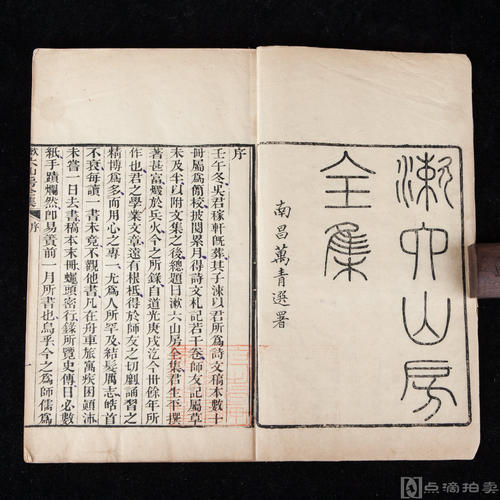 漱六山房
全集
南昌萬青選署
序
壬午冬吳君稼軒旣葬其子涑以君所爲詩文稿本數十
冊屬爲勘校披閱累月得詩文札記若干卷師友記屬草
未及半以附文集之後總題曰漱六山房全集君生平撰
著甚富燬於兵火今之所錄自道光庚戌迄今卅餘年所
作也君之學業文章遠有根柢得於師友之切劘誦習之
精博爲多而用心之專一尤爲人所罕及結髮厲志皓首
不衰每讀一書未竟不觀他書凡在舟車旅寓疾困顚沛
未嘗一日去書稿本末冊蠅頭密行錄所覽史傳日必數
紙手蹟爛然卽易簀前一月所書也烏乎今之爲師儒爲
漱六山房全集
序
一
点滴拍卖